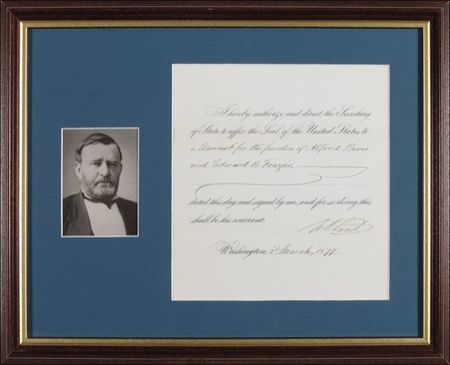 I hereby authorize and direct the Secretary
of State to affix the Seal of the United States to
a Warrant for the pardon of Alfred Bevis
and Edward B. Frazier,
dated this day, and signed by me, and for so doing this
shall be his warrant.
U.S. Grant
Washington, 2 March, 1877